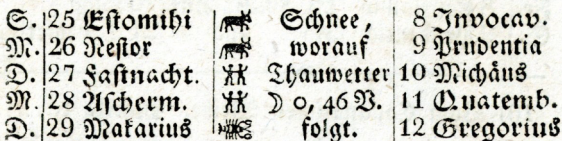 S. 25 Eſtomihi ♉ Schnee, 8 Invocav.
M. 26 Neſtor ♉ worauf 9 Prudentia
D. 27 Faſtnacht. ♊ Thauwetter 10 Michäus
M. 28 Aſcherm. ♊ ☽ 0, 46 V. 11 Quatemb.
D. 29 Makarius ♋ folgt. 12 Gregorius